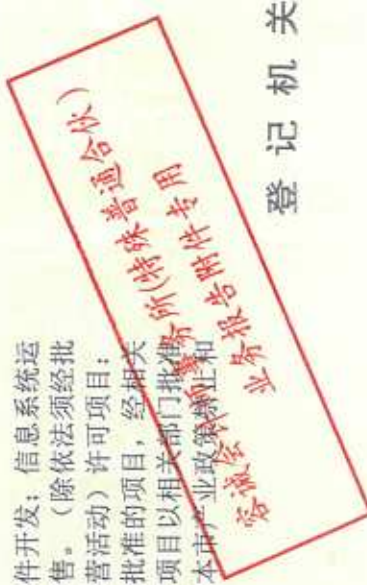 件开发；信息系统运
售。（除依法须经批
营活动）许可项目：
批准的项目，经相关
项目以相关部门批准
本市产业政策禁止和
容诚会计师事务所(特殊普通合伙)
业务报告附件专用
登记机关